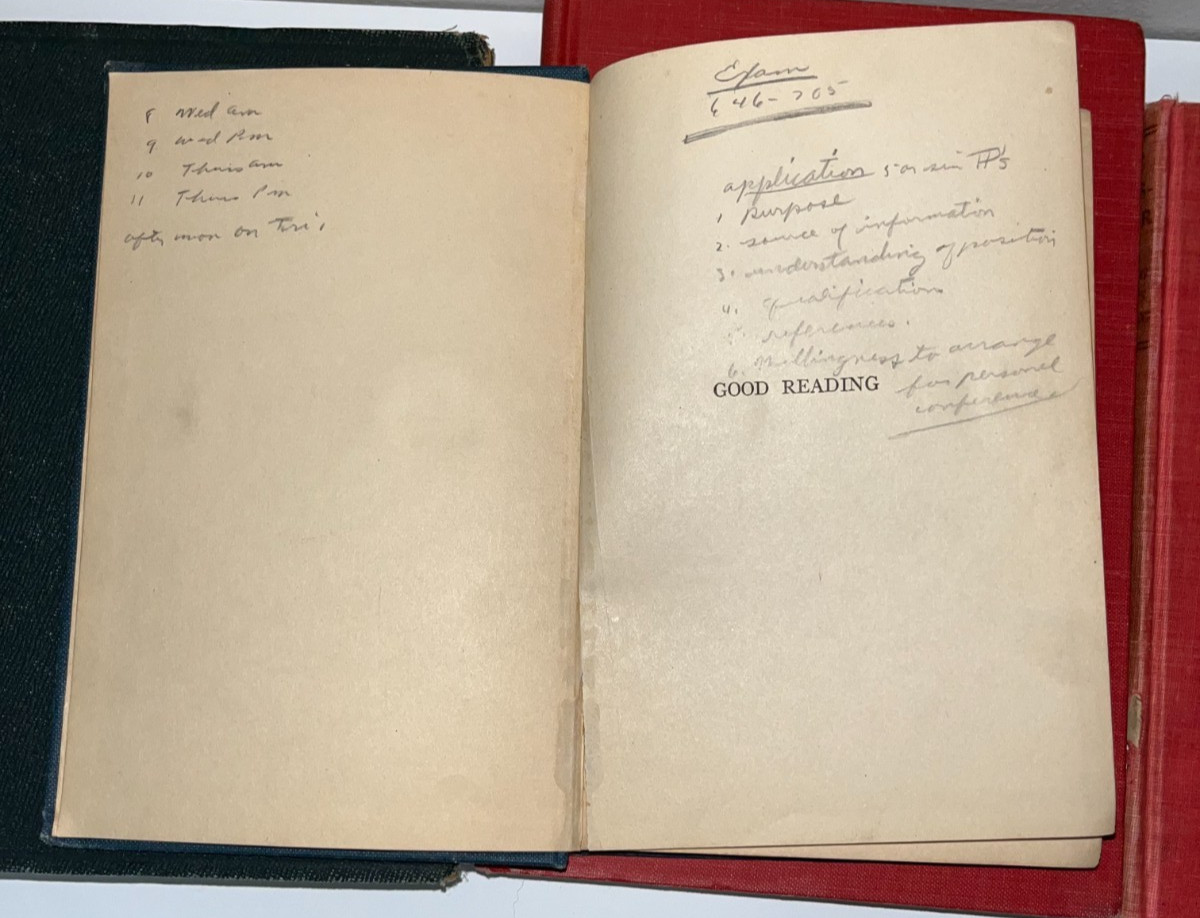 8 Wed am
9 Wed Pm
10 Thurs am
11 Thurs Pm
afternoon on Fri,
Exam
646-705
application 5 or six ¶'s
1 purpose
2. source of information
3. understanding of position
4. qualification
5 references.
6. Willingness to arrange
for personal
conference
GOOD READING